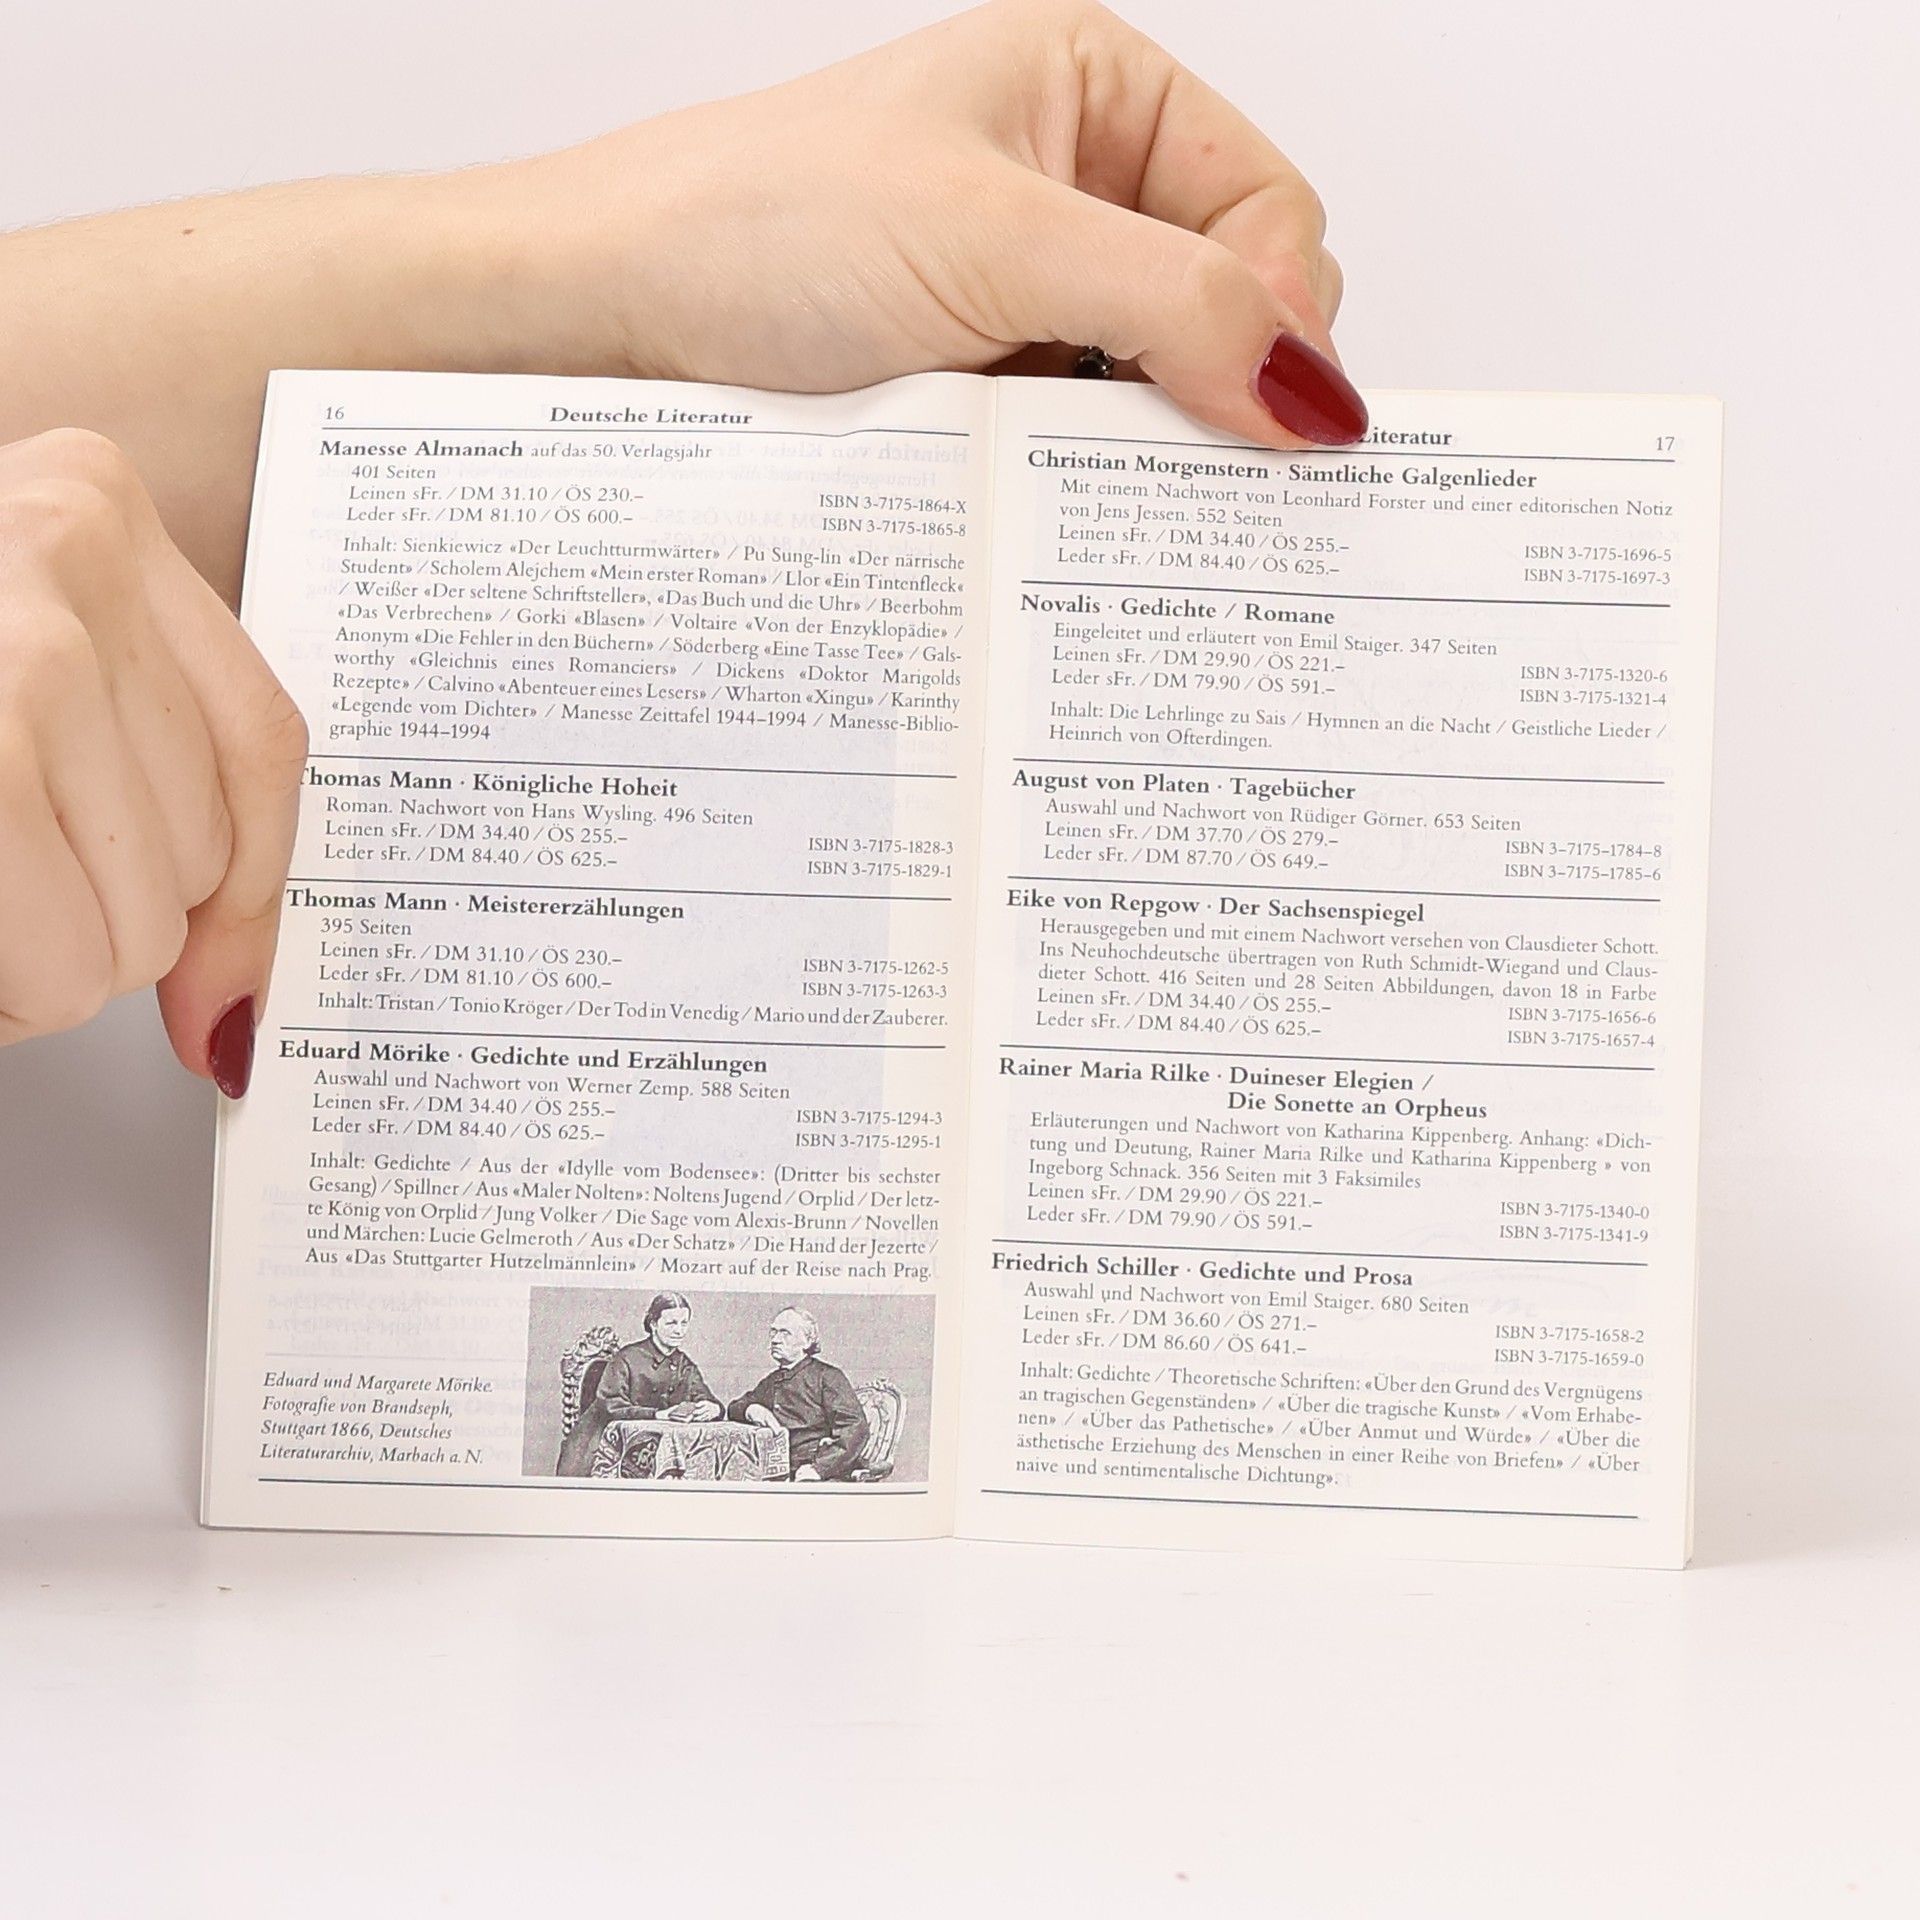 16
Deutsche Literatur
Manesse Almanach auf das 50. Verlagsjahr
401 Seiten
Leinen sFr. / DM 31.10 / ÖS 230.– ISBN 3-7175-1864-X
Leder sFr. / DM 81.10 / ÖS 600.– ISBN 3-7175-1865-8
Inhalt: Sienkiewicz «Der Leuchtturmwärter» / Pu Sung-lin «Der närrische
Student» / Scholem Alejchem «Mein erster Roman» / Llor «Ein Tintenfleck«
/ Weißer «Der seltene Schriftsteller», «Das Buch und die Uhr» / Beerbohm
«Das Verbrechen» / Gorki «Blasen» / Voltaire «Von der Enzyklopädie» /
Anonym «Die Fehler in den Büchern» / Söderberg «Eine Tasse Tee» / Gals-
worthy «Gleichnis eines Romanciers» / Dickens «Doktor Marigolds
Rezepte» / Calvino «Abenteuer eines Lesers» / Wharton «Xingu» / Karinthy
«Legende vom Dichter» / Manesse Zeittafel 1944–1994 / Manesse-Biblio-
graphie 1944–1994
Thomas Mann · Königliche Hoheit
Roman. Nachwort von Hans Wysling. 496 Seiten
Leinen sFr. / DM 34.40 / ÖS 255.– ISBN 3-7175-1828-3
Leder sFr. / DM 84.40 / ÖS 625.– ISBN 3-7175-1829-1
Thomas Mann · Meistererzählungen
395 Seiten
Leinen sFr. / DM 31.10 / ÖS 230.– ISBN 3-7175-1262-5
Leder sFr. / DM 81.10 / ÖS 600.– ISBN 3-7175-1263-3
Inhalt: Tristan / Tonio Kröger / Der Tod in Venedig / Mario und der Zauberer.
Eduard Mörike · Gedichte und Erzählungen
Auswahl und Nachwort von Werner Zemp. 588 Seiten
Leinen sFr. / DM 34.40 / ÖS 255.– ISBN 3-7175-1294-3
Leder sFr. / DM 84.40 / ÖS 625.– ISBN 3-7175-1295-1
Inhalt: Gedichte / Aus der «Idylle vom Bodensee»: (Dritter bis sechster
Gesang) / Spillner / Aus «Maler Nolten»: Noltens Jugend / Orplid / Der letz-
te König von Orplid / Jung Volker / Die Sage vom Alexis-Brunn / Novellen
und Märchen: Lucie Gelmeroth / Aus «Der Schatz» / Die Hand der Jezerte /
Aus «Das Stuttgarter Hutzelmännlein» / Mozart auf der Reise nach Prag.
Eduard und Margarete Mörike.
Fotografie von Brandseph,
Stuttgart 1866, Deutsches
Literaturarchiv, Marbach a. N.
Literatur
17
Christian Morgenstern · Sämtliche Galgenlieder
Mit einem Nachwort von Leonhard Forster und einer editorischen Notiz
von Jens Jessen. 552 Seiten
Leinen sFr. / DM 34.40 / ÖS 255.– ISBN 3-7175-1696-5
Leder sFr. / DM 84.40 / ÖS 625.– ISBN 3-7175-1697-3
Novalis · Gedichte / Romane
Eingeleitet und erläutert von Emil Staiger. 347 Seiten
Leinen sFr. / DM 29.90 / ÖS 221.– ISBN 3-7175-1320-6
Leder sFr. / DM 79.90 / ÖS 591.– ISBN 3-7175-1321-4
Inhalt: Die Lehrlinge zu Sais / Hymnen an die Nacht / Geistliche Lieder /
Heinrich von Ofterdingen.
August von Platen · Tagebücher
Auswahl und Nachwort von Rüdiger Görner. 653 Seiten
Leinen sFr. / DM 37.70 / ÖS 279.– ISBN 3–7175–1784–8
Leder sFr. / DM 87.70 / ÖS 649.– ISBN 3–7175–1785–6
Eike von Repgow · Der Sachsenspiegel
Herausgegeben und mit einem Nachwort versehen von Clausdieter Schott.
Ins Neuhochdeutsche übertragen von Ruth Schmidt-Wiegand und Claus-
dieter Schott. 416 Seiten und 28 Seiten Abbildungen, davon 18 in Farbe
Leinen sFr. / DM 34.40 / ÖS 255.– ISBN 3-7175-1656-6
Leder sFr. / DM 84.40 / ÖS 625.– ISBN 3-7175-1657-4
Rainer Maria Rilke · Duineser Elegien /
Die Sonette an Orpheus
Erläuterungen und Nachwort von Katharina Kippenberg. Anhang: «Dich-
tung und Deutung, Rainer Maria Rilke und Katharina Kippenberg » von
Ingeborg Schnack. 356 Seiten mit 3 Faksimiles
Leinen sFr. / DM 29.90 / ÖS 221.– ISBN 3-7175-1340-0
Leder sFr. / DM 79.90 / ÖS 591.– ISBN 3-7175-1341-9
Friedrich Schiller · Gedichte und Prosa
Auswahl und Nachwort von Emil Staiger. 680 Seiten
Leinen sFr. / DM 36.60 / ÖS 271.– ISBN 3-7175-1658-2
Leder sFr. / DM 86.60 / ÖS 641.– ISBN 3-7175-1659-0
Inhalt: Gedichte / Theoretische Schriften: «Über den Grund des Vergnügens
an tragischen Gegenständen» / «Über die tragische Kunst» / «Vom Erhabe-
nen» / «Über das Pathetische» / «Über Anmut und Würde» / «Über die
ästhetische Erziehung des Menschen in einer Reihe von Briefen» / «Über
naive und sentimentalische Dichtung».